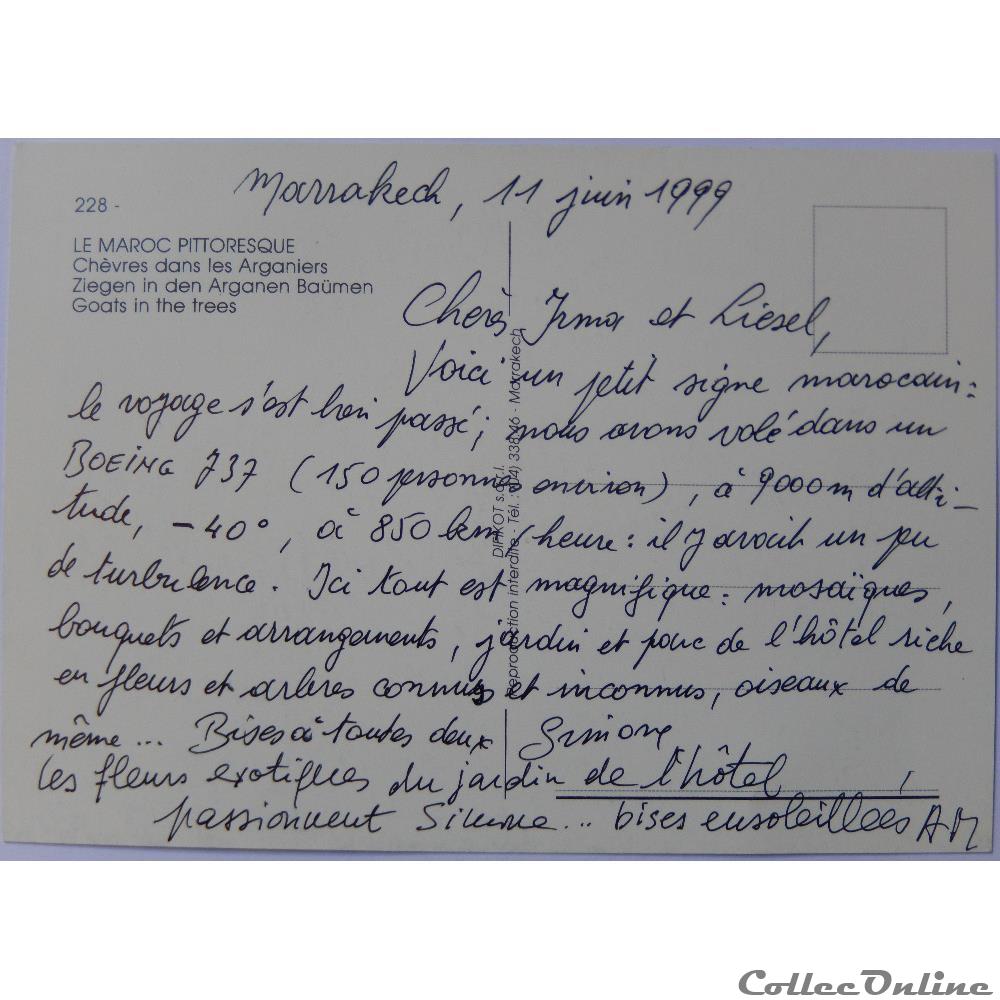 Marrakech, 11 juin 1999
228 -
LE MAROC PITTORESQUE
Chèvres dans les Arganiers
Ziegen in den Arganen Baümen
Goats in the trees
Chères Irma et Liesel,
Voici un petit signe marocain:
le voyage s'est bien passé; nous avons volé dans un
BOEING 737 (150 personnes environ), à 9000m d'alti-
tude, -40°, à 850 km/heure: il y avait un peu
de turbulence. Ici tout est magnifique: mosaïques,
bouquets et arrangements, jardin et parc de l'hôtel riche
en fleurs et arbres connus et inconnus, oiseaux de
même... Bises à toutes deux Simone
les fleurs exotiques du jardin de l'hôtel
passionnent Simone... bises ensoleillées AM
DIFIKOT s.a.r.l.
Reproduction interdite - Tél.: (04) 338.46 - Marrakech
CollecOnline